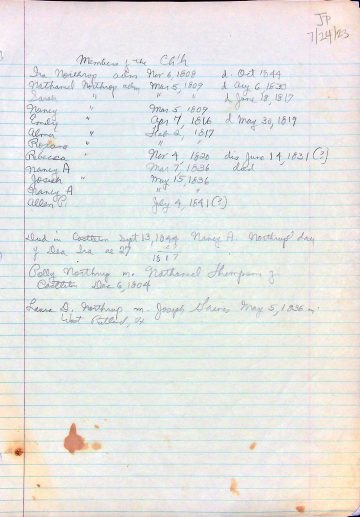 JP
7/24/23
Members of the Ch'h
Ira Northrop adm Nov 6, 1808 d. Oct 1844
Nathanal Northrop adm Mar 5, 1809 d Aug 6, 1820
Sarah " " " d June 18, 1817
Nancy " Mar 5, 1809
Emily " Apr 7, 1816 d May 30, 1819
Alma " Feb 2, 1817
" "
Rebecca " Nov 4, 1820 dis June 14, 1831 (?)
Nancy A Mar 7, 1836 died
Josiah " May 15, 1836
Nancy A " "
Allen P. July 4, 1841 (?)
Died in Castleton Sept 13, 1844 Nancy A. Northrup day
of Dea. Ira ae 27
1817
Polly Northrup m. Nathanel Thompson
Castleton Dec 6, 1804
Laura D. Northrup m. Joseph May 5, 1836 in
West Rutland, Vt